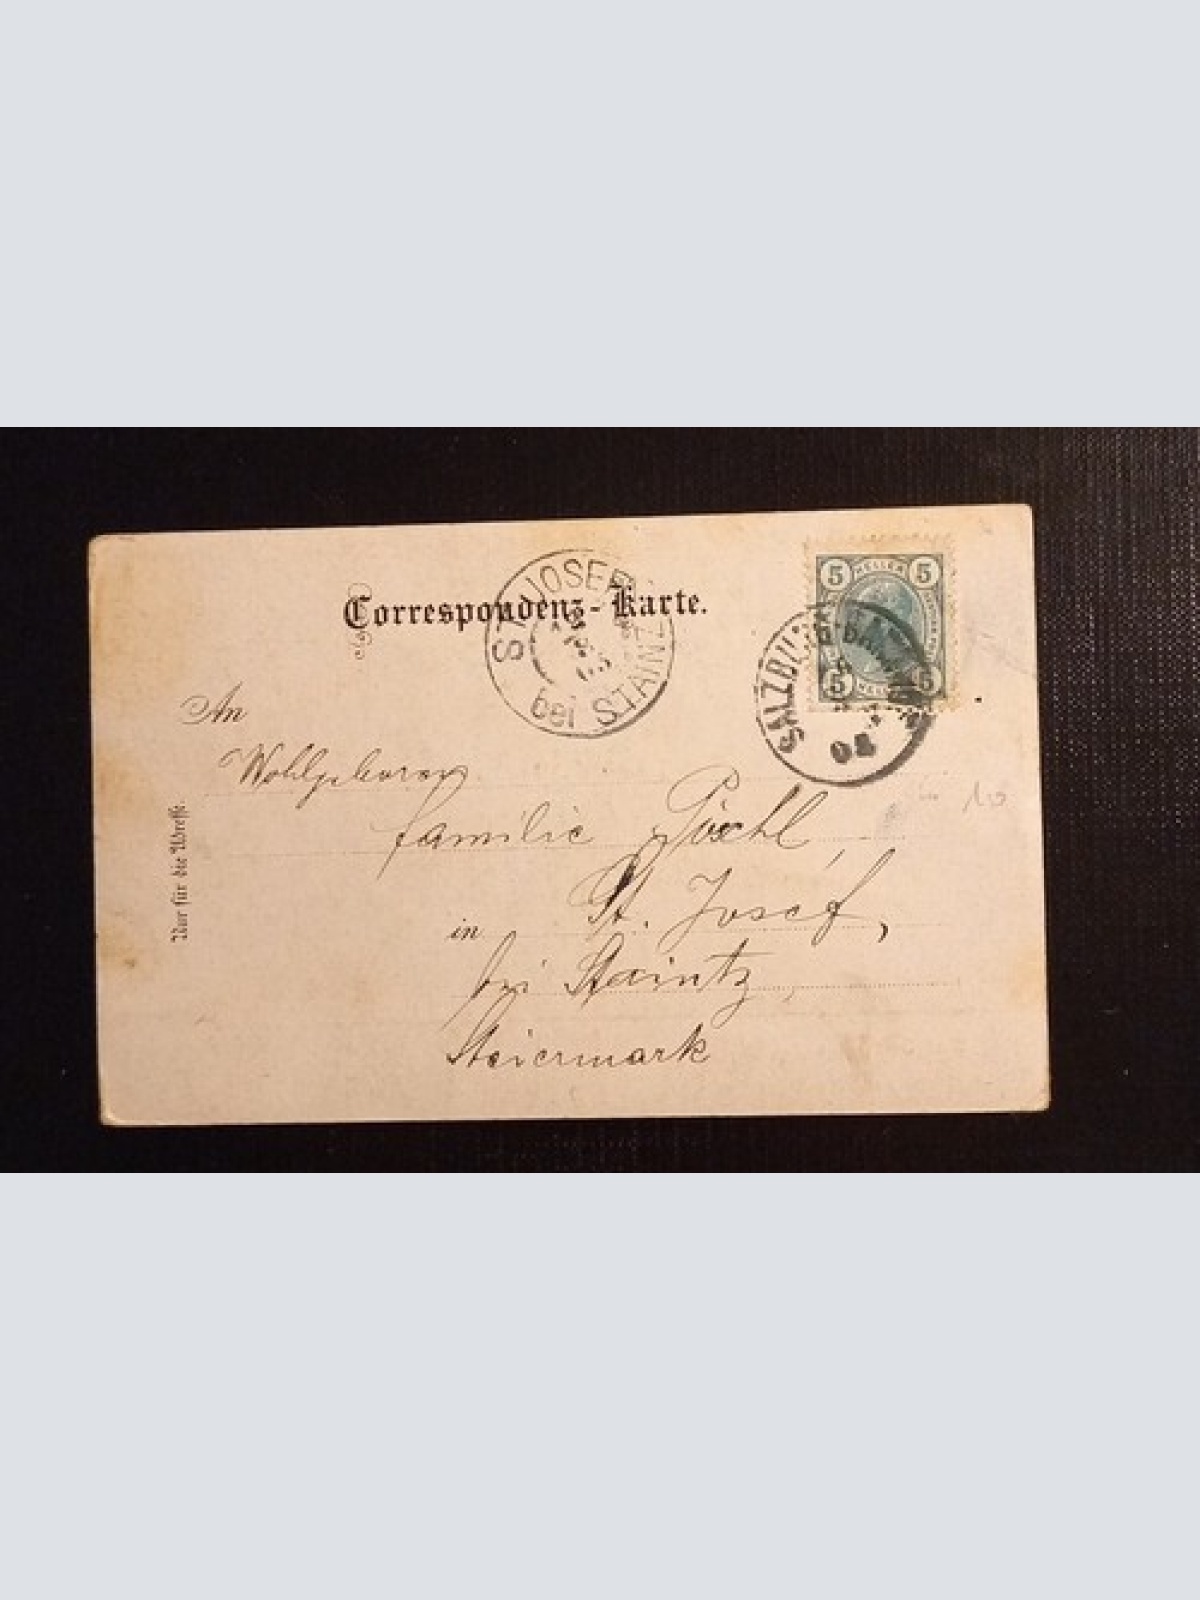 Correspondenz-Karte.
ST. JOSEF
bei STAINZ
5 HELLER 5
5 HELLER 5
SALZBURG
An
Wohlgeboren
Familie Pöschl,
in St. Josef,
bei Staintz,
Steiermark
Nur für die Adresse.
10